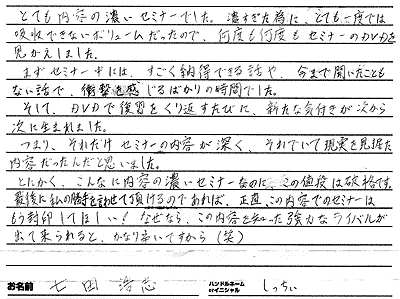 とても内容の濃いセミナーでした。濃すぎた為に、とても一度では
吸収できないボリュームだったので、何度も何度もセミナーのDVDを
見かえしました。
まずセミナー中には、すごく納得できる話や、今まで聞いたことも
ない話で、衝撃を感じるばかりの時間でした。
そして、DVDで復習をくり返すたびに、新たな気付きが次から
次に生まれました。
つまり、それだけセミナーの内容が深く、それでいて現実を見据えた
内容だったんだと思いました。
とにかく、こんなに内容の濃いセミナーなのに、この値段は破格です。
最後に私の勝手を言わせて頂けるのであれば、正直、この内容でのセミナーは
もう封印してほしい！なぜなら、この内容を知った強力なライバルが
出て来られると、かなり辛いですから（笑）
お名前 七田 浩志 ハンドルネーム しっちぃ
orイニシャル